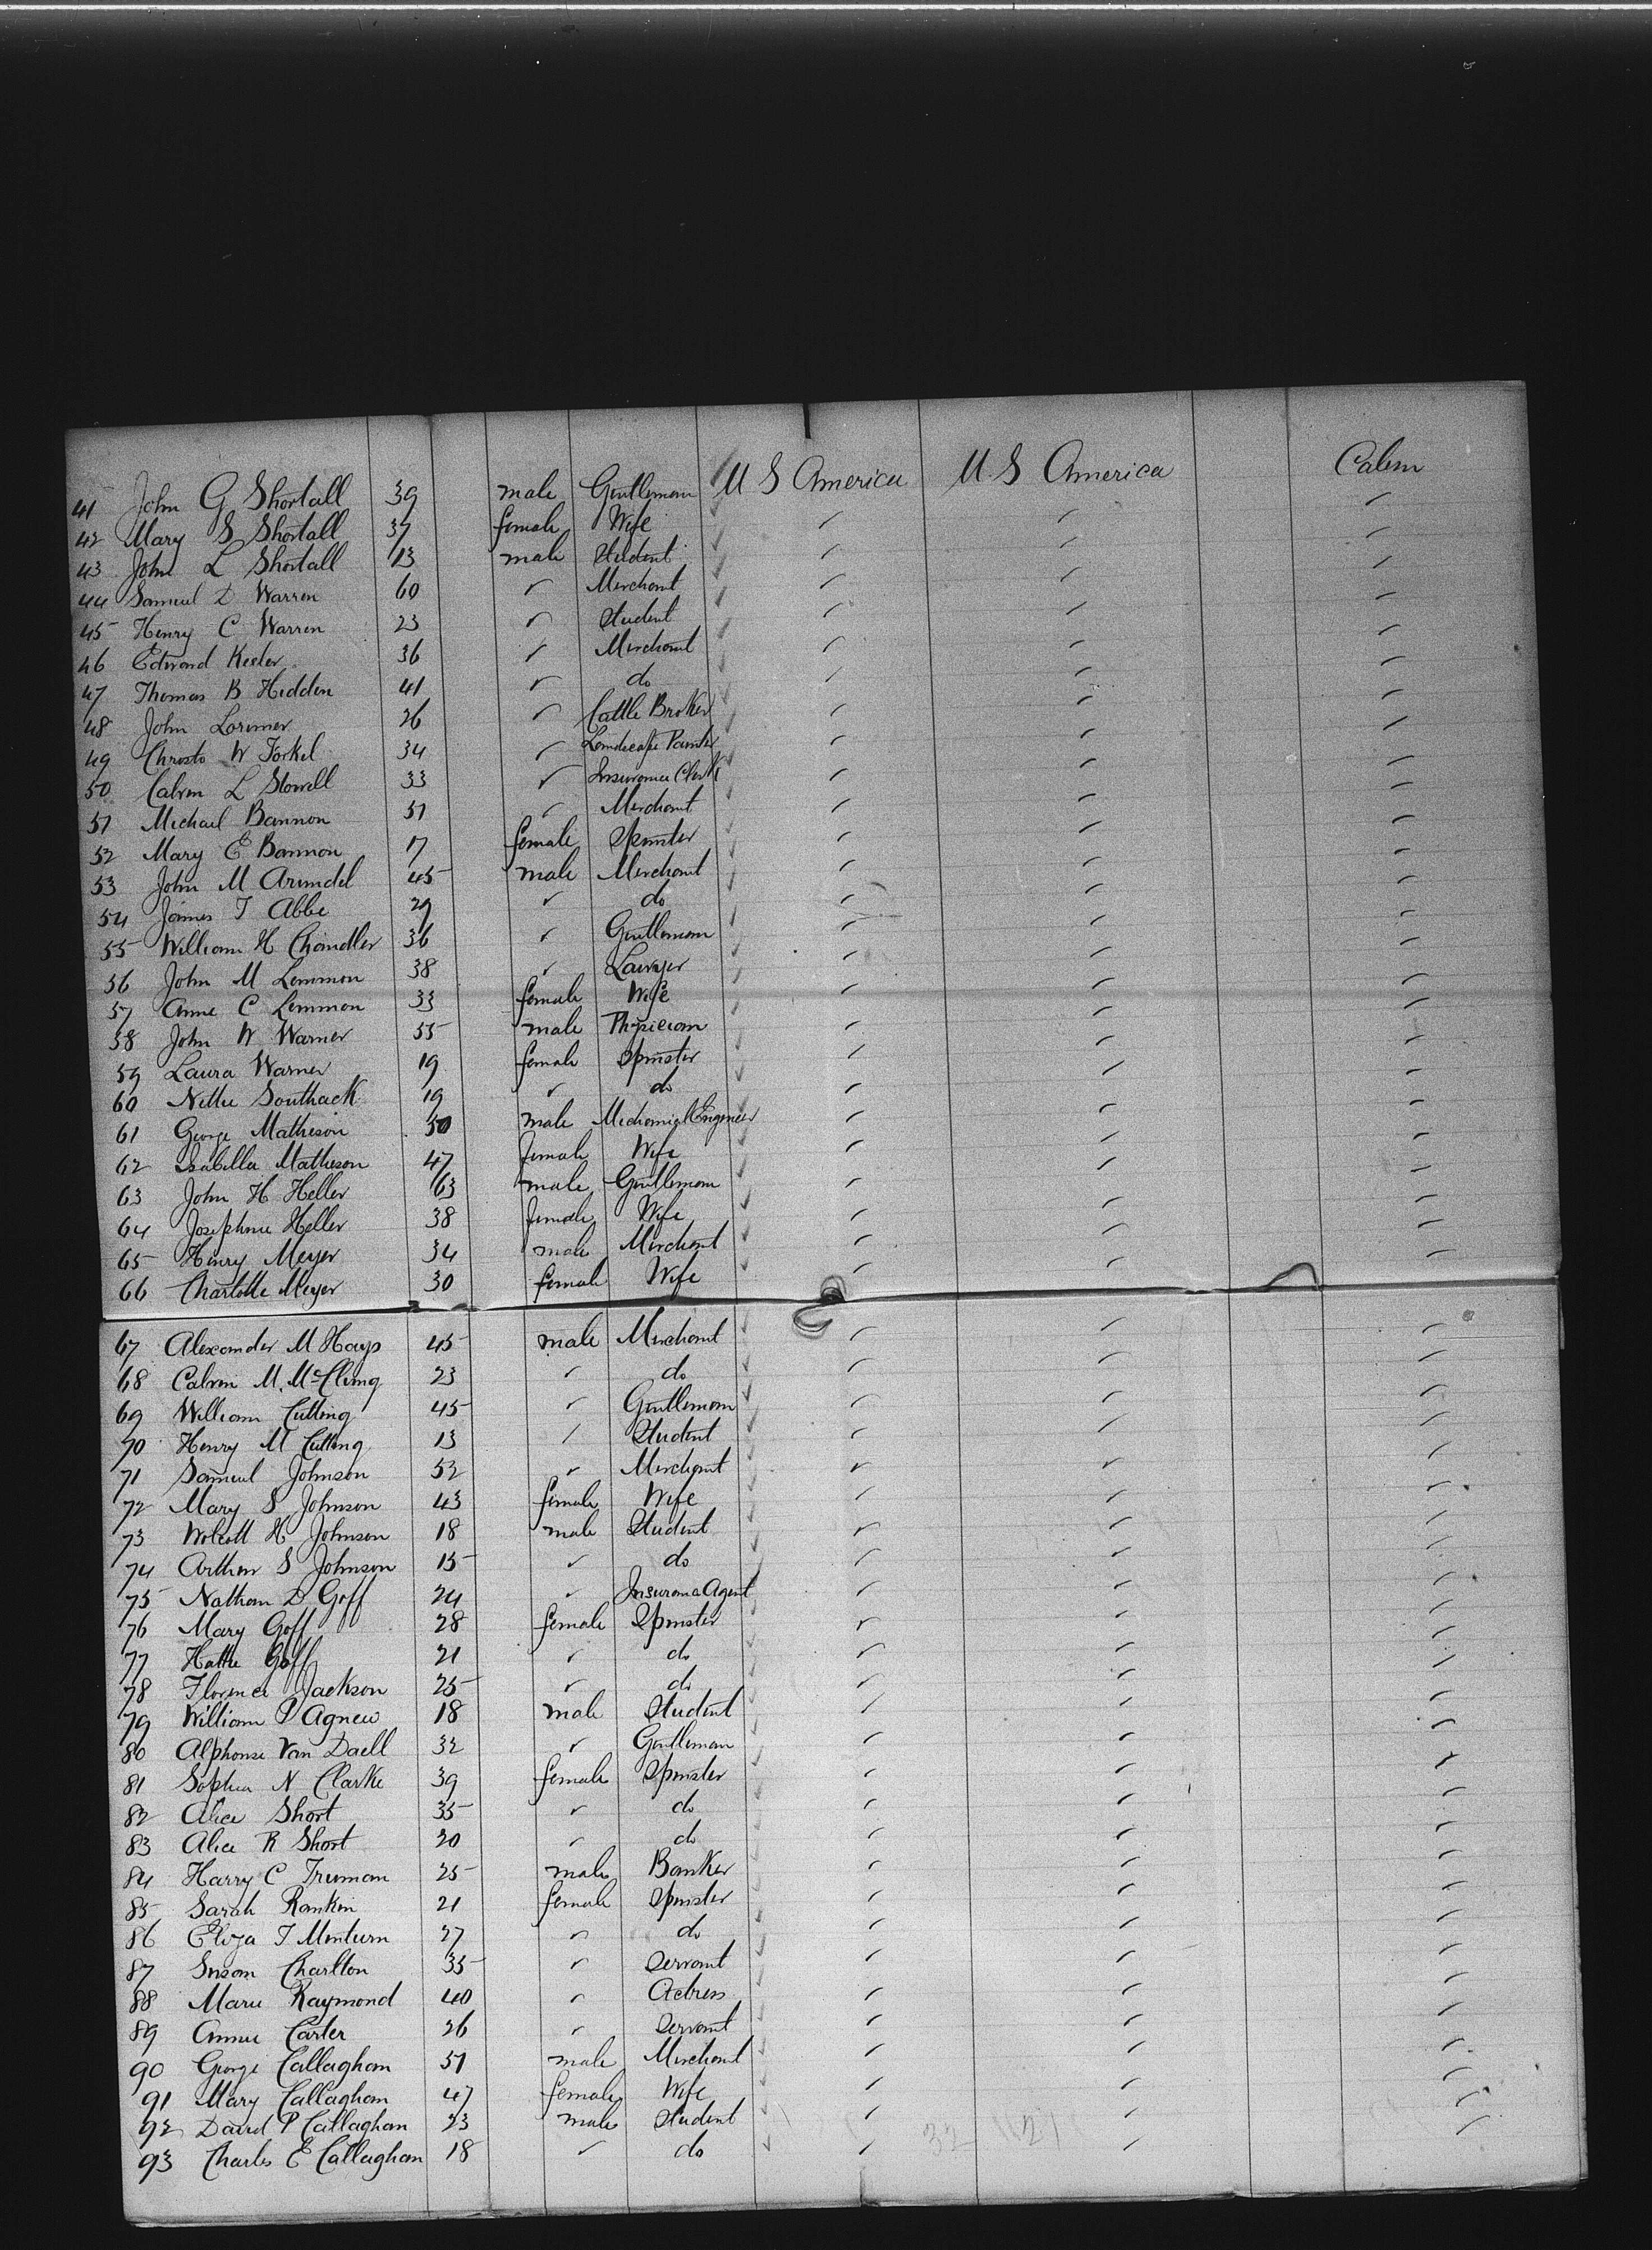 41 John G Shortall 39 male Gentleman U S America U S America Cabin
42 Mary S Shortall 37 female Wife
43 John L Shortall 13 male Student
44 Samuel D Warren 60 " Merchant
45 Henry C Warren 23 " Student
46 Edward Keeler 36 " Merchant
47 Thomas B Hidden 41 " do
48 John Lorimer 26 " Cattle Broker
49 Christo W Forkel 34 " Landscape Painter
50 Calvin L Stowell 33 " Insurance Clerk
51 Michael Bannon 51 " Merchant
52 Mary E Bannon 17 female Spinster
53 John M Arundel 45 male Merchant
54 James T Abbe 29 " do
55 William H Chandler 36 " Gentleman
56 John M Lemmon 38 " Lawyer
57 Anne C Lemmon 33 female Wife
58 John W Warner 55 male Physician
59 Laura Warner 19 female Spinster
60 Nettie Southack 19 " do
61 George Matheson 50 male Mechanical Engineer
62 Isabella Matheson 47 female Wife
63 John H Heller 63 male Gentleman
64 Josephine Heller 38 female Wife
65 Henry Meyer 34 male Merchant
66 Charlotte Meyer 30 female Wife
67 Alexander M Hays 45 male Merchant
68 Calvin M. McClung 23 " do
69 William Cutting 45 " Gentleman
70 Henry M Cutting 13 " Student
71 Samuel Johnson 52 " Merchant
72 Mary S Johnson 43 female Wife
73 Wolcott H Johnson 18 male Student
74 Arthur S Johnson 15 " do
75 Nathan D Goff 24 " Insurance Agent
76 Mary Goff 28 female Spinster
77 Hattie Goff 21 " do
78 Florence Jackson 25 " do
79 William P Agnew 18 male Student
80 Alphonse Van Daell 32 " Gentleman
81 Sophia N Clarke 39 female Spinster
82 Alice Short 35 " do
83 Alice R Short 20 " do
84 Harry C Truman 25 male Banker
85 Sarah Rankin 21 female Spinster
86 Eliza T Minturn 27 " do
87 Susan Charlton 35 " Servant
88 Marie Raymond 40 " Actress
89 Annie Carter 26 " Servant
90 George Callaghan 51 male Merchant
91 Mary Callaghan 47 female Wife
92 David P Callaghan 23 male Student
93 Charles E Callaghan 18 " do